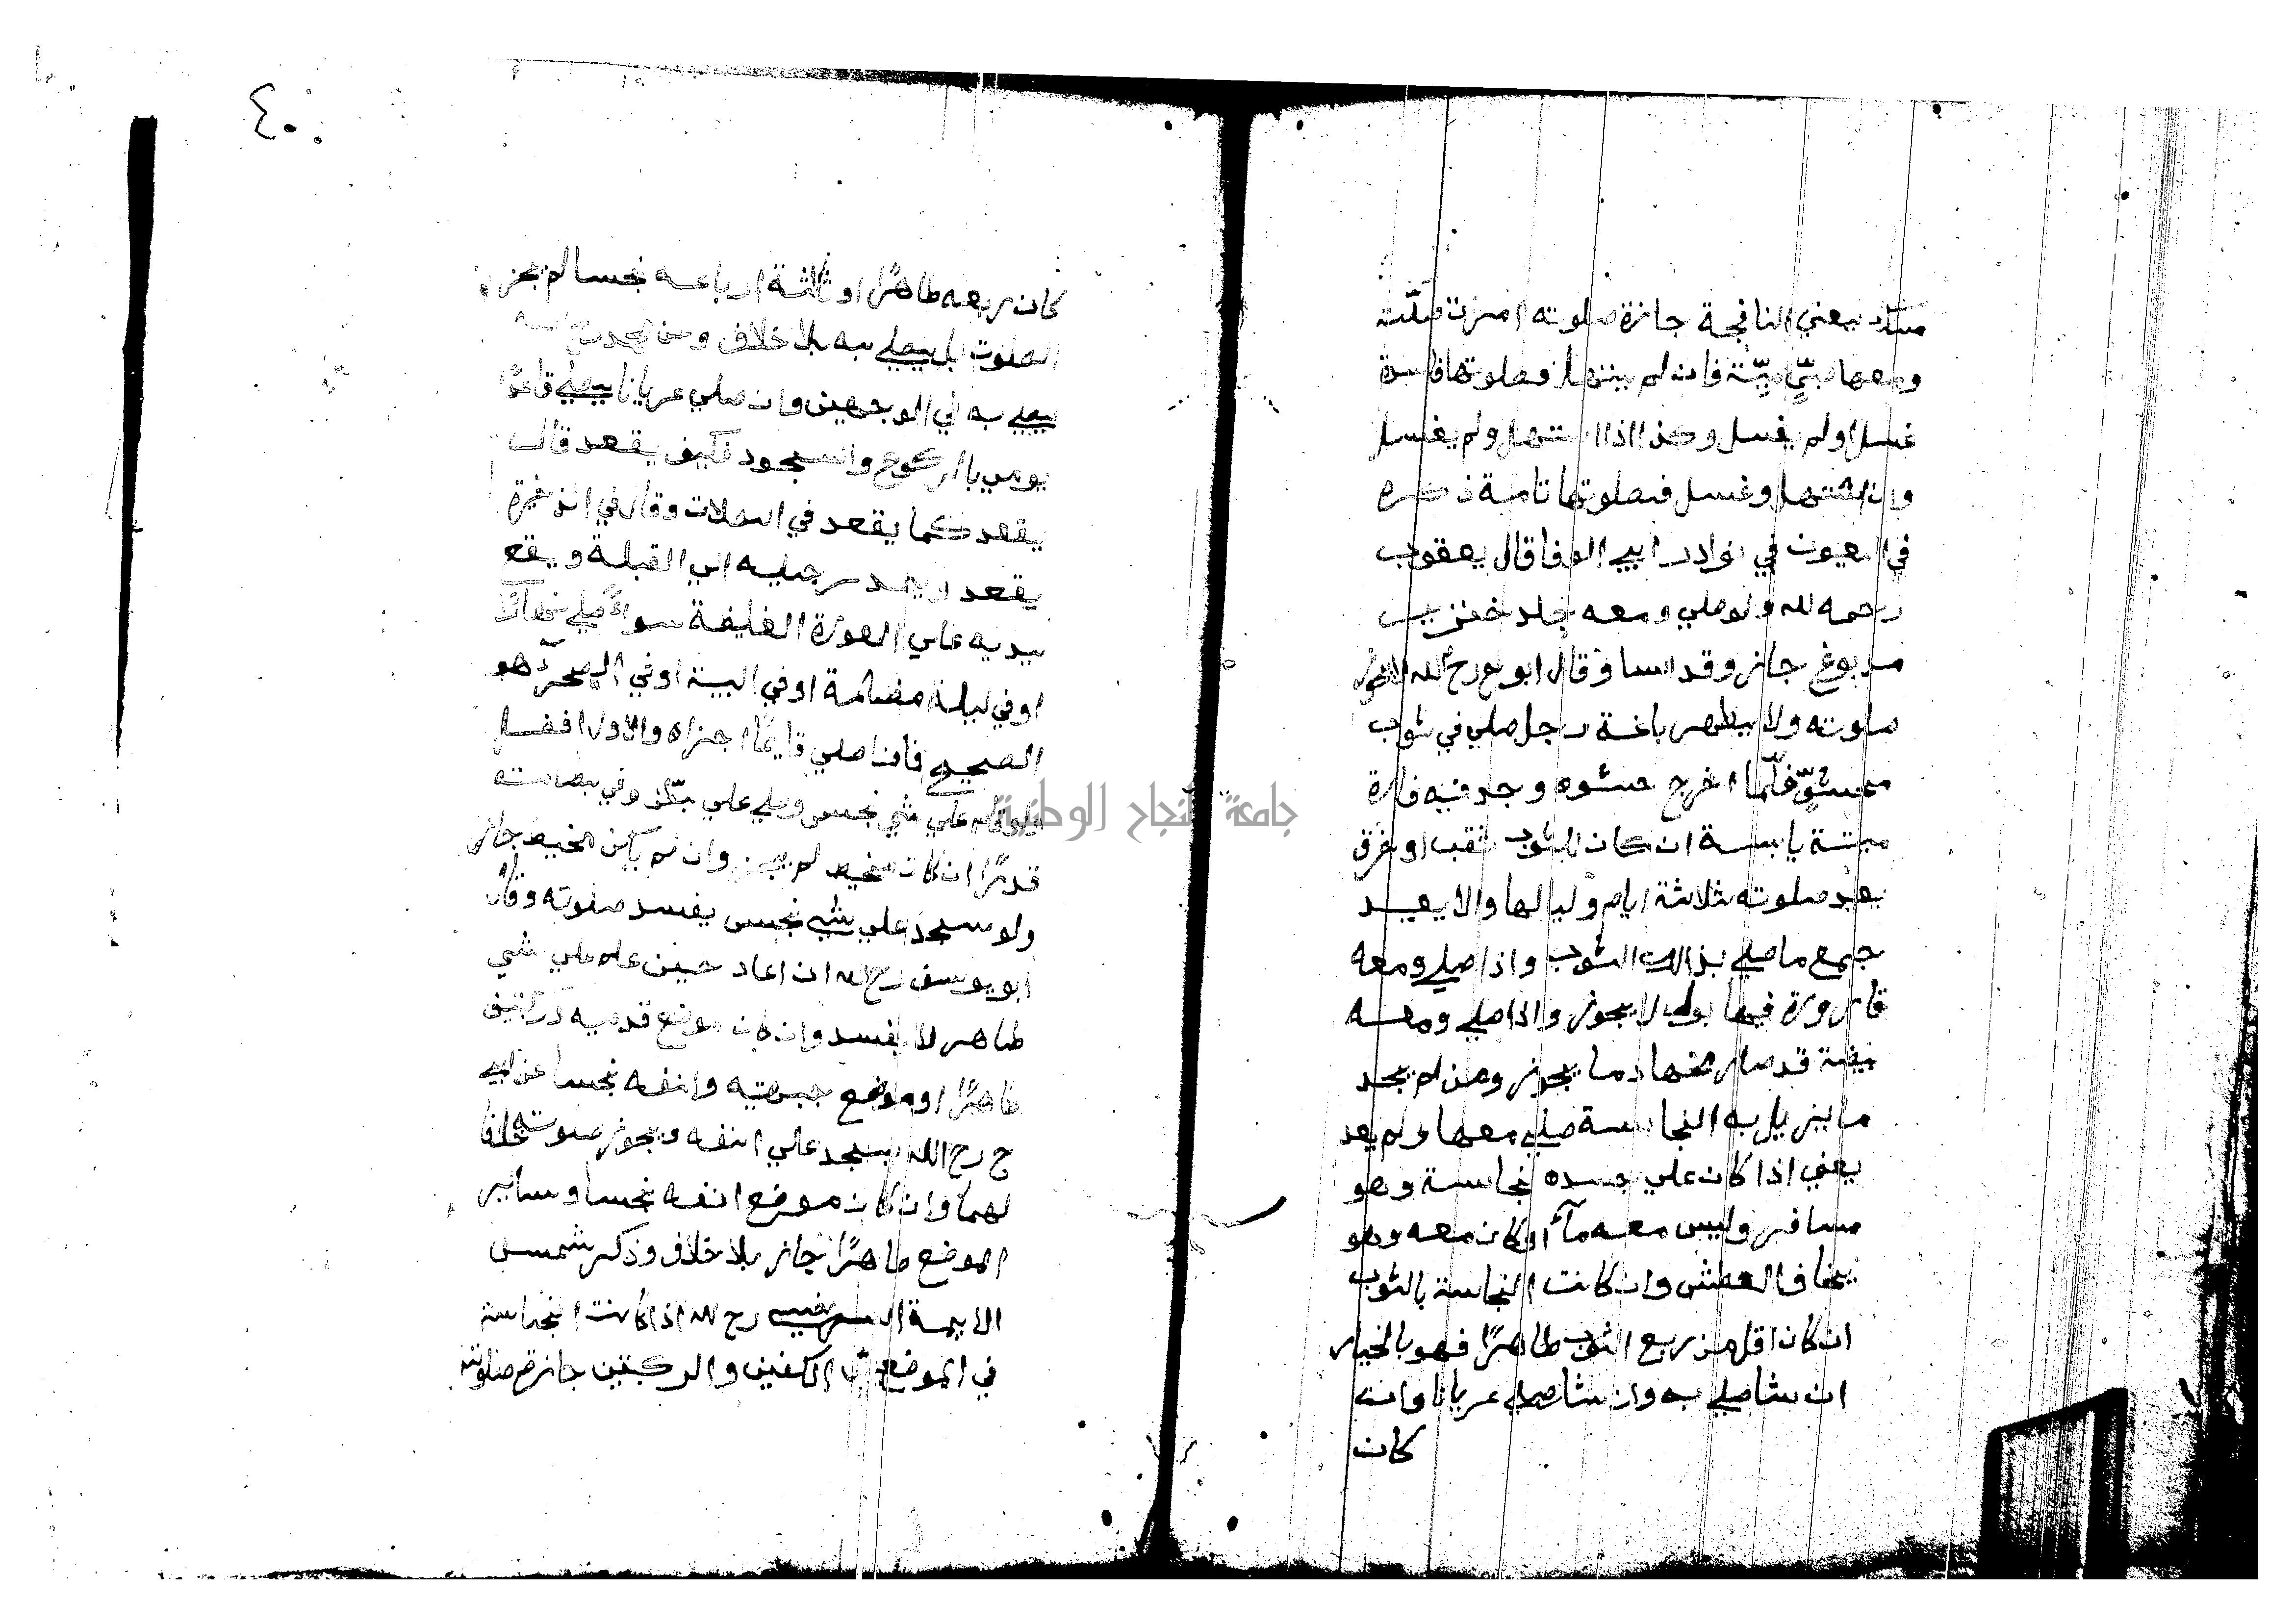 مسك يعني النافجة جازة صلوته امرات صلت
ومعها صبي ميت فان لم يستهل فصلوتها فاسدة
غسل اولم يغسل وكذا اذا استهل ولم يغسل
وان استهل وغسل فصلوتها تامة ذكره
في العيون في نوادر ابي الوفا قال يعقوب
رحمه لله ولو صلي ومعه جلد خنزير
مدبوغ جاز وقد اسا وقال ابو رح الله
صلوته ولا يطهر باغة رجل صلي في ثوب
محشو فلما اخرج حشوه وجد فيه فارة
ميتة يابسة ان كان للثوب ثقب او خرق
يعيد صلوته ثلاثة ايام وليالها والا يعيد
جميع ما صلي بذالك الثوب واذا صلي ومعه
قارورة فيها بول لا يجوز واذا صلي ومعه
بيضة قد صار مخها دما يجوز ومن لم يجد
ما يزيل به النجاسة صلي معها ولم يعد
يعني اذا كان علي جسده نجاسة وهو
مسافر وليس معه مآء او كان معه وهو
يخاف العطش وان كانت النجاسة بالثوب
ان كان اقل من ربع الثوب طاهرًا فهو بالخيار
ان شا صلي به وان شا صلي عريانا وان
كان
٤٠
كان ربعه طاهرًا او ثلثة ارباعه نجسا لم يجز
الصلوت بل يصلي به بلا خلاف وعن محمد
يصلي به في الوجهين وان صلي عريانا يصلي قاعدًا
يومي بالركوع والسجود فكيف يقعد قال
يقعد كما يقعد في الصلات وقال في الذخيرة
يقعد ويمد رجليه الي القبلة ويضع
يديه علي العورة الغليظة سواء صلي نهارًا
او في ليلة مظلمة او في البيت او في الصحراء هو
الصحيح فان صلي قايمًا اجزاه والاول افضل
علي شي نجس وصلي علي وفي بطانته
قدرًا ان كان مخيط لم يجز وان لم يكن مخيط جاز
ولو سجد علي شي نجس يفسد صلوته وقال
ابو يوسف رح لله ان اعاد حين علم علي شي
طاهر لا يفسد وان كان موضع قدميه وركبتيه
طاهرًا وموضع جبهته وانفه نجسا عن ابي
ح رح الله يسجد علي انفه ويجوز صلوته خلافا
لهما وان كان موضع انفه نجسا وساير
الموضع طاهرًا جاز بلا خلاف وذكر شمس
الايمة السرخسي رح لله اذا كانت النجاسة
في الموضع الكفين والركبتين جازة صلوته
جامعة النجاح الوطنية